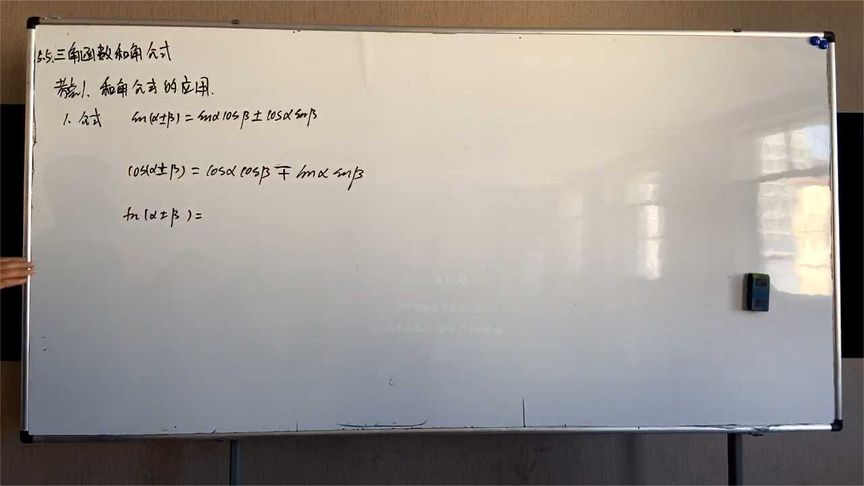 5.5.三角函数和角公式
考点1. 和角公式的应用.
1. 公式 sin(α±β)=sinαcosβ±cosαsinβ
cos(α±β)=cosαcosβ∓sinαsinβ
tan(α±β)=